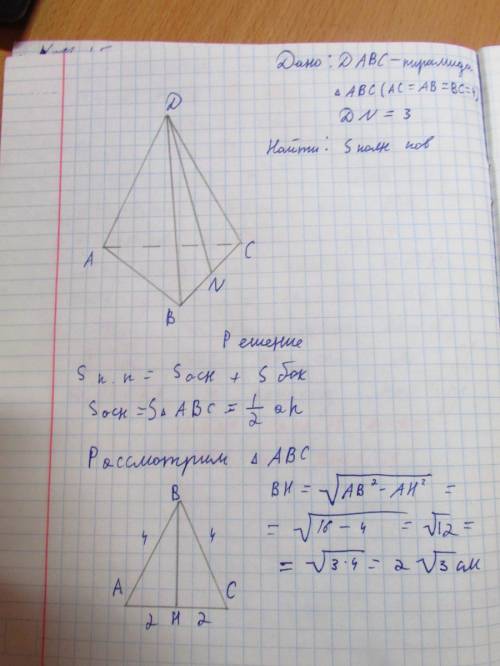 Дано: DABC - пирамида
△ ABC (AC = AB = BC = 4)
DN = 3
Найти: S полн пов
D
A
C
N
B
Решение
S п.п = Sосн + S бок
Sосн = S△ ABC = 1/2 ah
Рассмотрим △ ABC
B
4 4
A C
2 H 2
BH = √(AB² - AH²) =
= √(16 - 4) = √12 =
= √(3·4) = 2√3 см